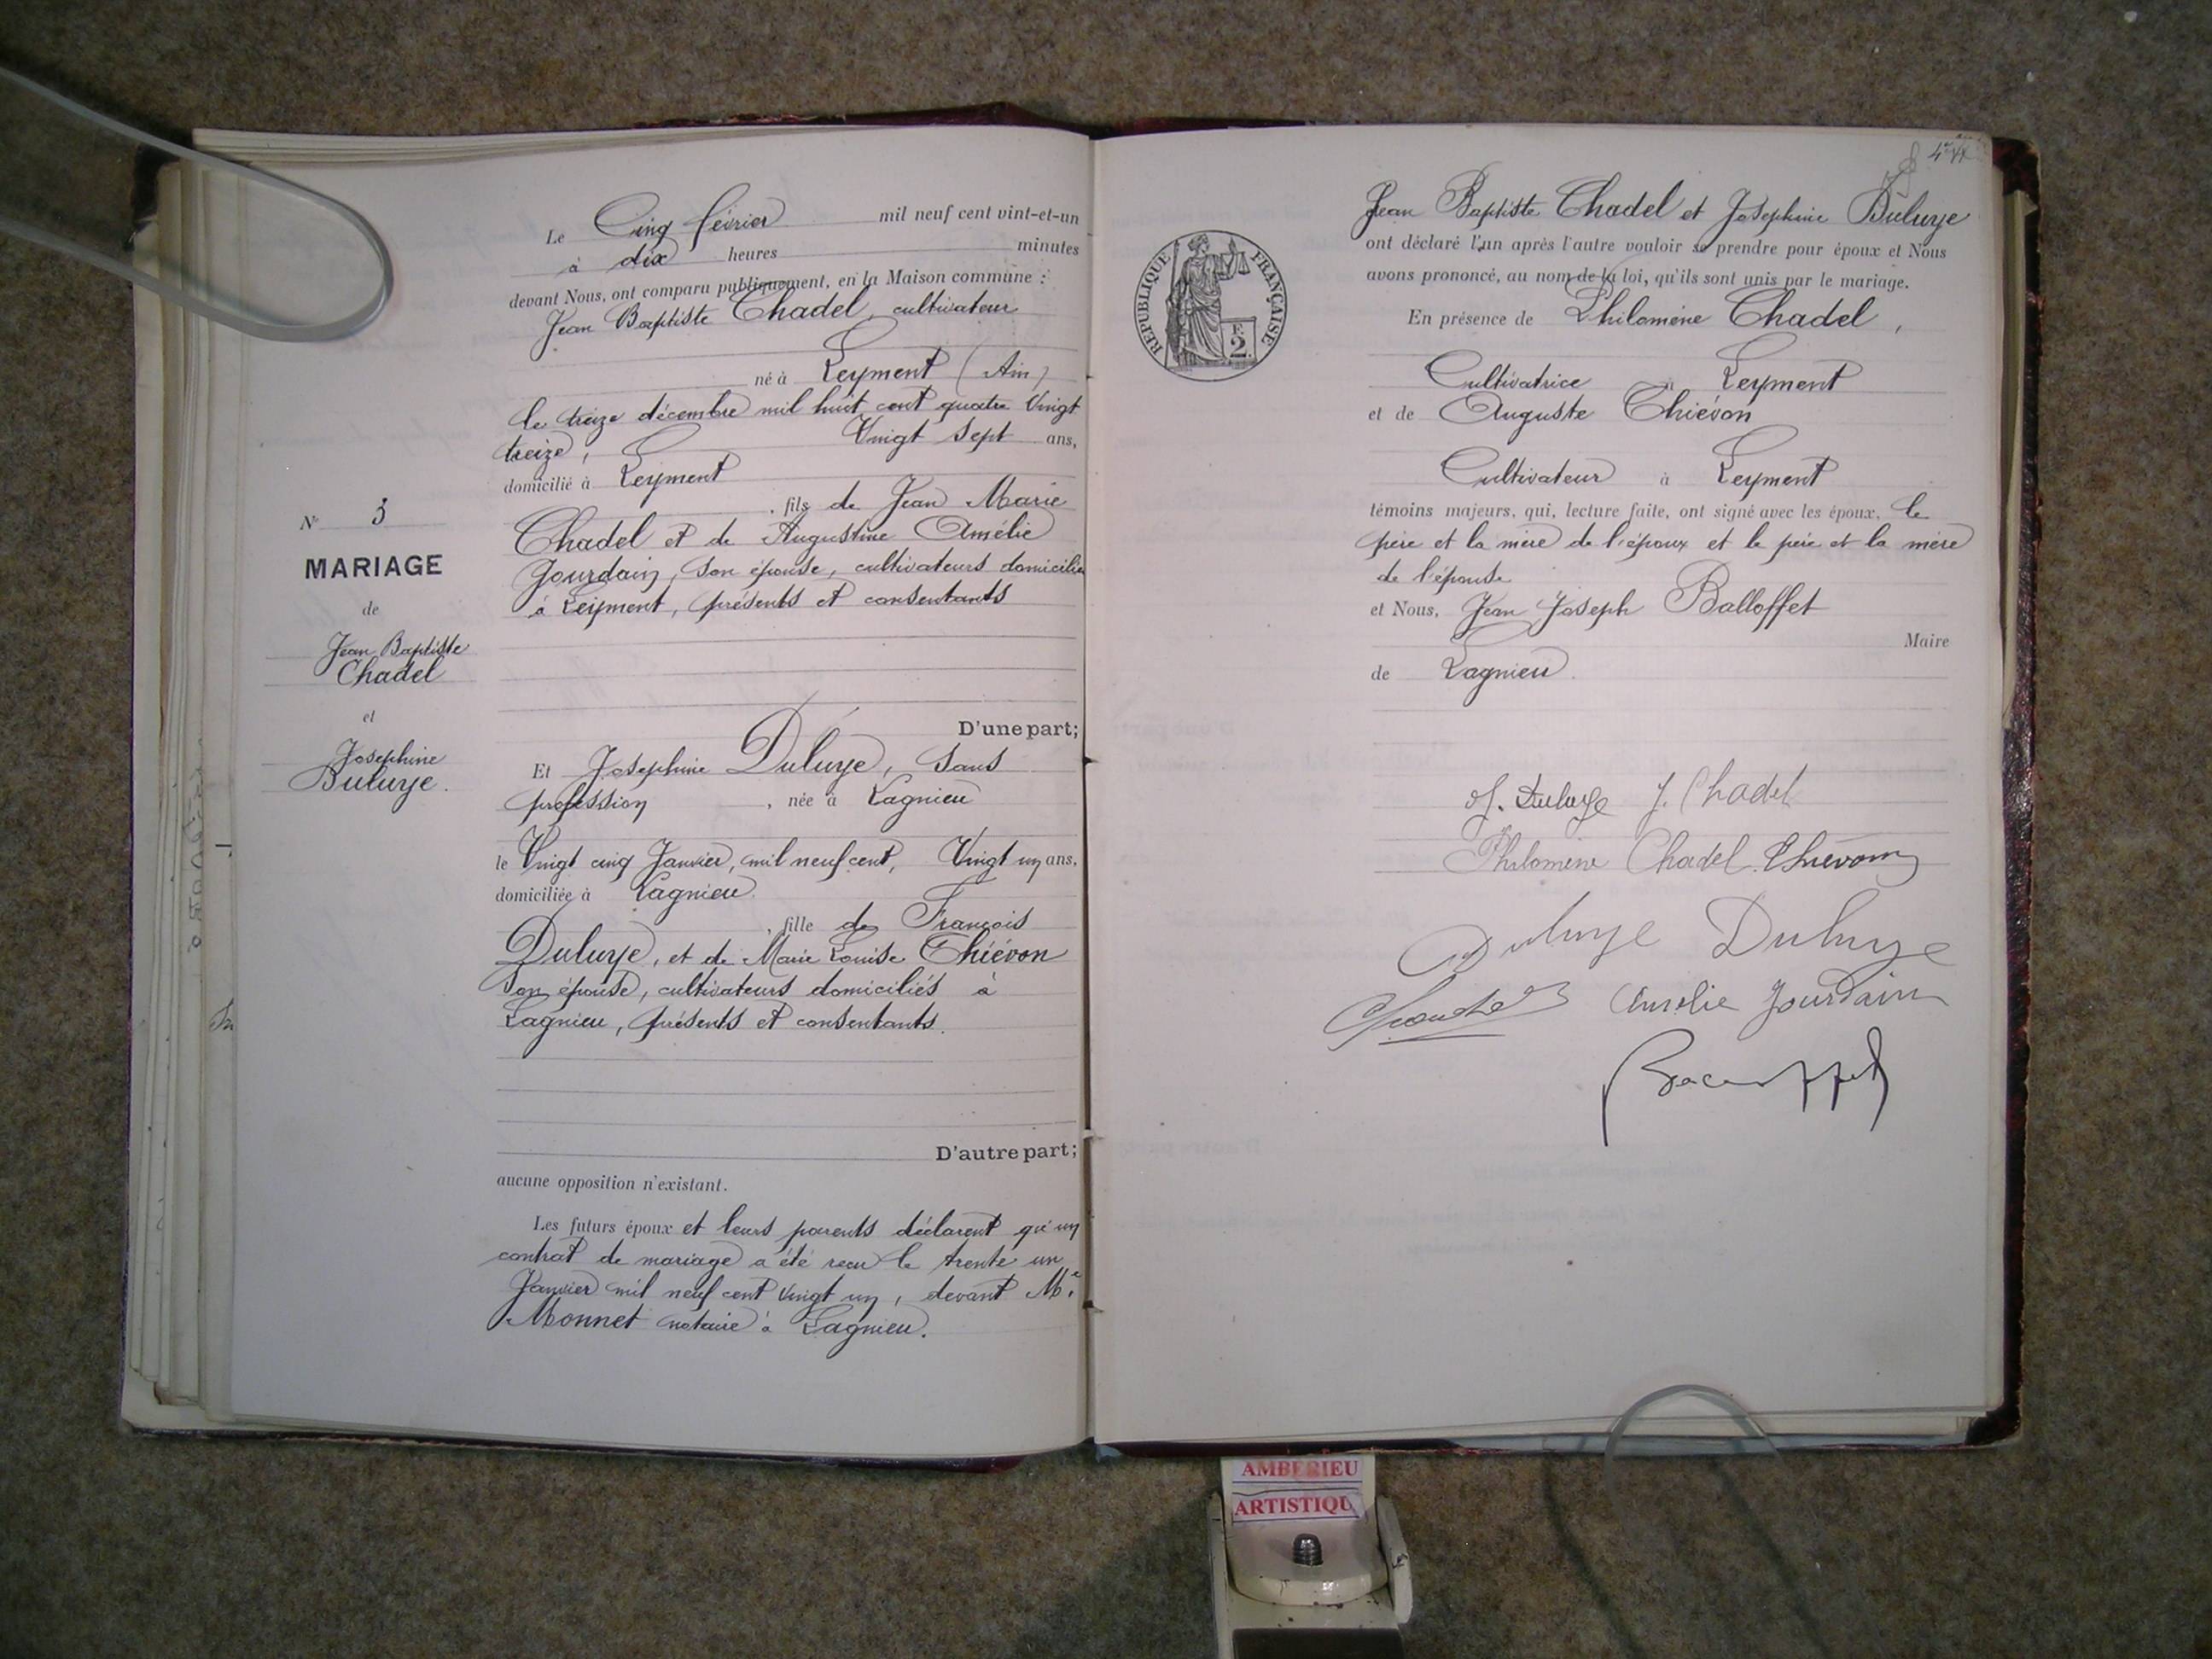 N° 3
MARIAGE
de
Jean Baptiste
Chadel
et
Josephine
Buluye.
Le Cinq février mil neuf cent vint-et-un
à dix heures minutes
devant Nous, ont comparu publiquement, en la Maison commune :
Jean Baptiste Chadel, cultivateur
né à Leyment (Ain)
le treize décembre mil huit cent quatre vingt
treize, Vingt sept ans,
domicilié à Leyment
, fils de Jean Marie
Chadel et de Augustine Amélie
Jourdain, son épouse, cultivateurs domiciliés
à Leyment, présents et consentants
D'une part;
Et Josephine Duluye, sans
profession, née à Lagnieu
le Vingt cinq Janvier, mil neuf cent, Vingt un ans,
domiciliée à Lagnieu
, fille de François
Duluye, et de Marie Louise Thiévon
son épouse, cultivateurs domiciliés à
Lagnieu, présents et consentants.
D'autre part;
aucune opposition n'existant.
Les futurs époux et leurs parents déclarent qu'un
contrat de mariage a été reçu le trente un
Janvier mil neuf cent vingt un, devant Me
Monnet notaire à Lagnieu.
RÉPUBLIQUE FRANÇAISE
2
Jean Baptiste Chadel et Josephine Buluye
ont déclaré l'un après l'autre vouloir se prendre pour époux et Nous
avons prononcé, au nom de la loi, qu'ils sont unis par le mariage.
En présence de Philomène Chadel,
Cultivatrice à Leyment
et de Auguste Thiévon
Cultivateur à Leyment
témoins majeurs, qui, lecture faite, ont signé avec les époux, le
père et la mère de l'époux et le père et la mère
de l'épouse
et Nous, Jean Joseph Balloffet
Maire
de Lagnieu.
J. Duluye J. Chadel
Philomène Chadel Thiévon
Duluye Duluye
Amélie Jourdain
AMBERIEU
ARTISTIQU